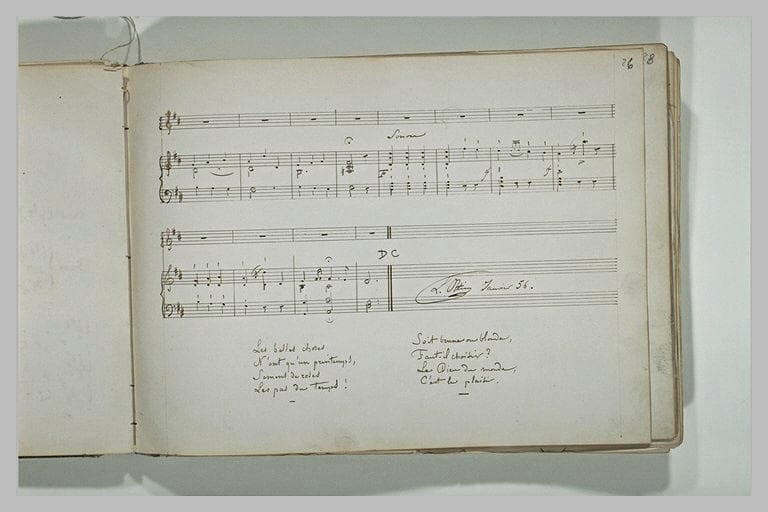 26 28
Sonore
D C
Janvier 56.
Les belles choses
N'ont qu'un printemps,
Semons de roses
Les pas du Temps !
Soit brune ou blonde,
Faut-il choisir ?
Le Dieu du monde,
C'est le plaisir.